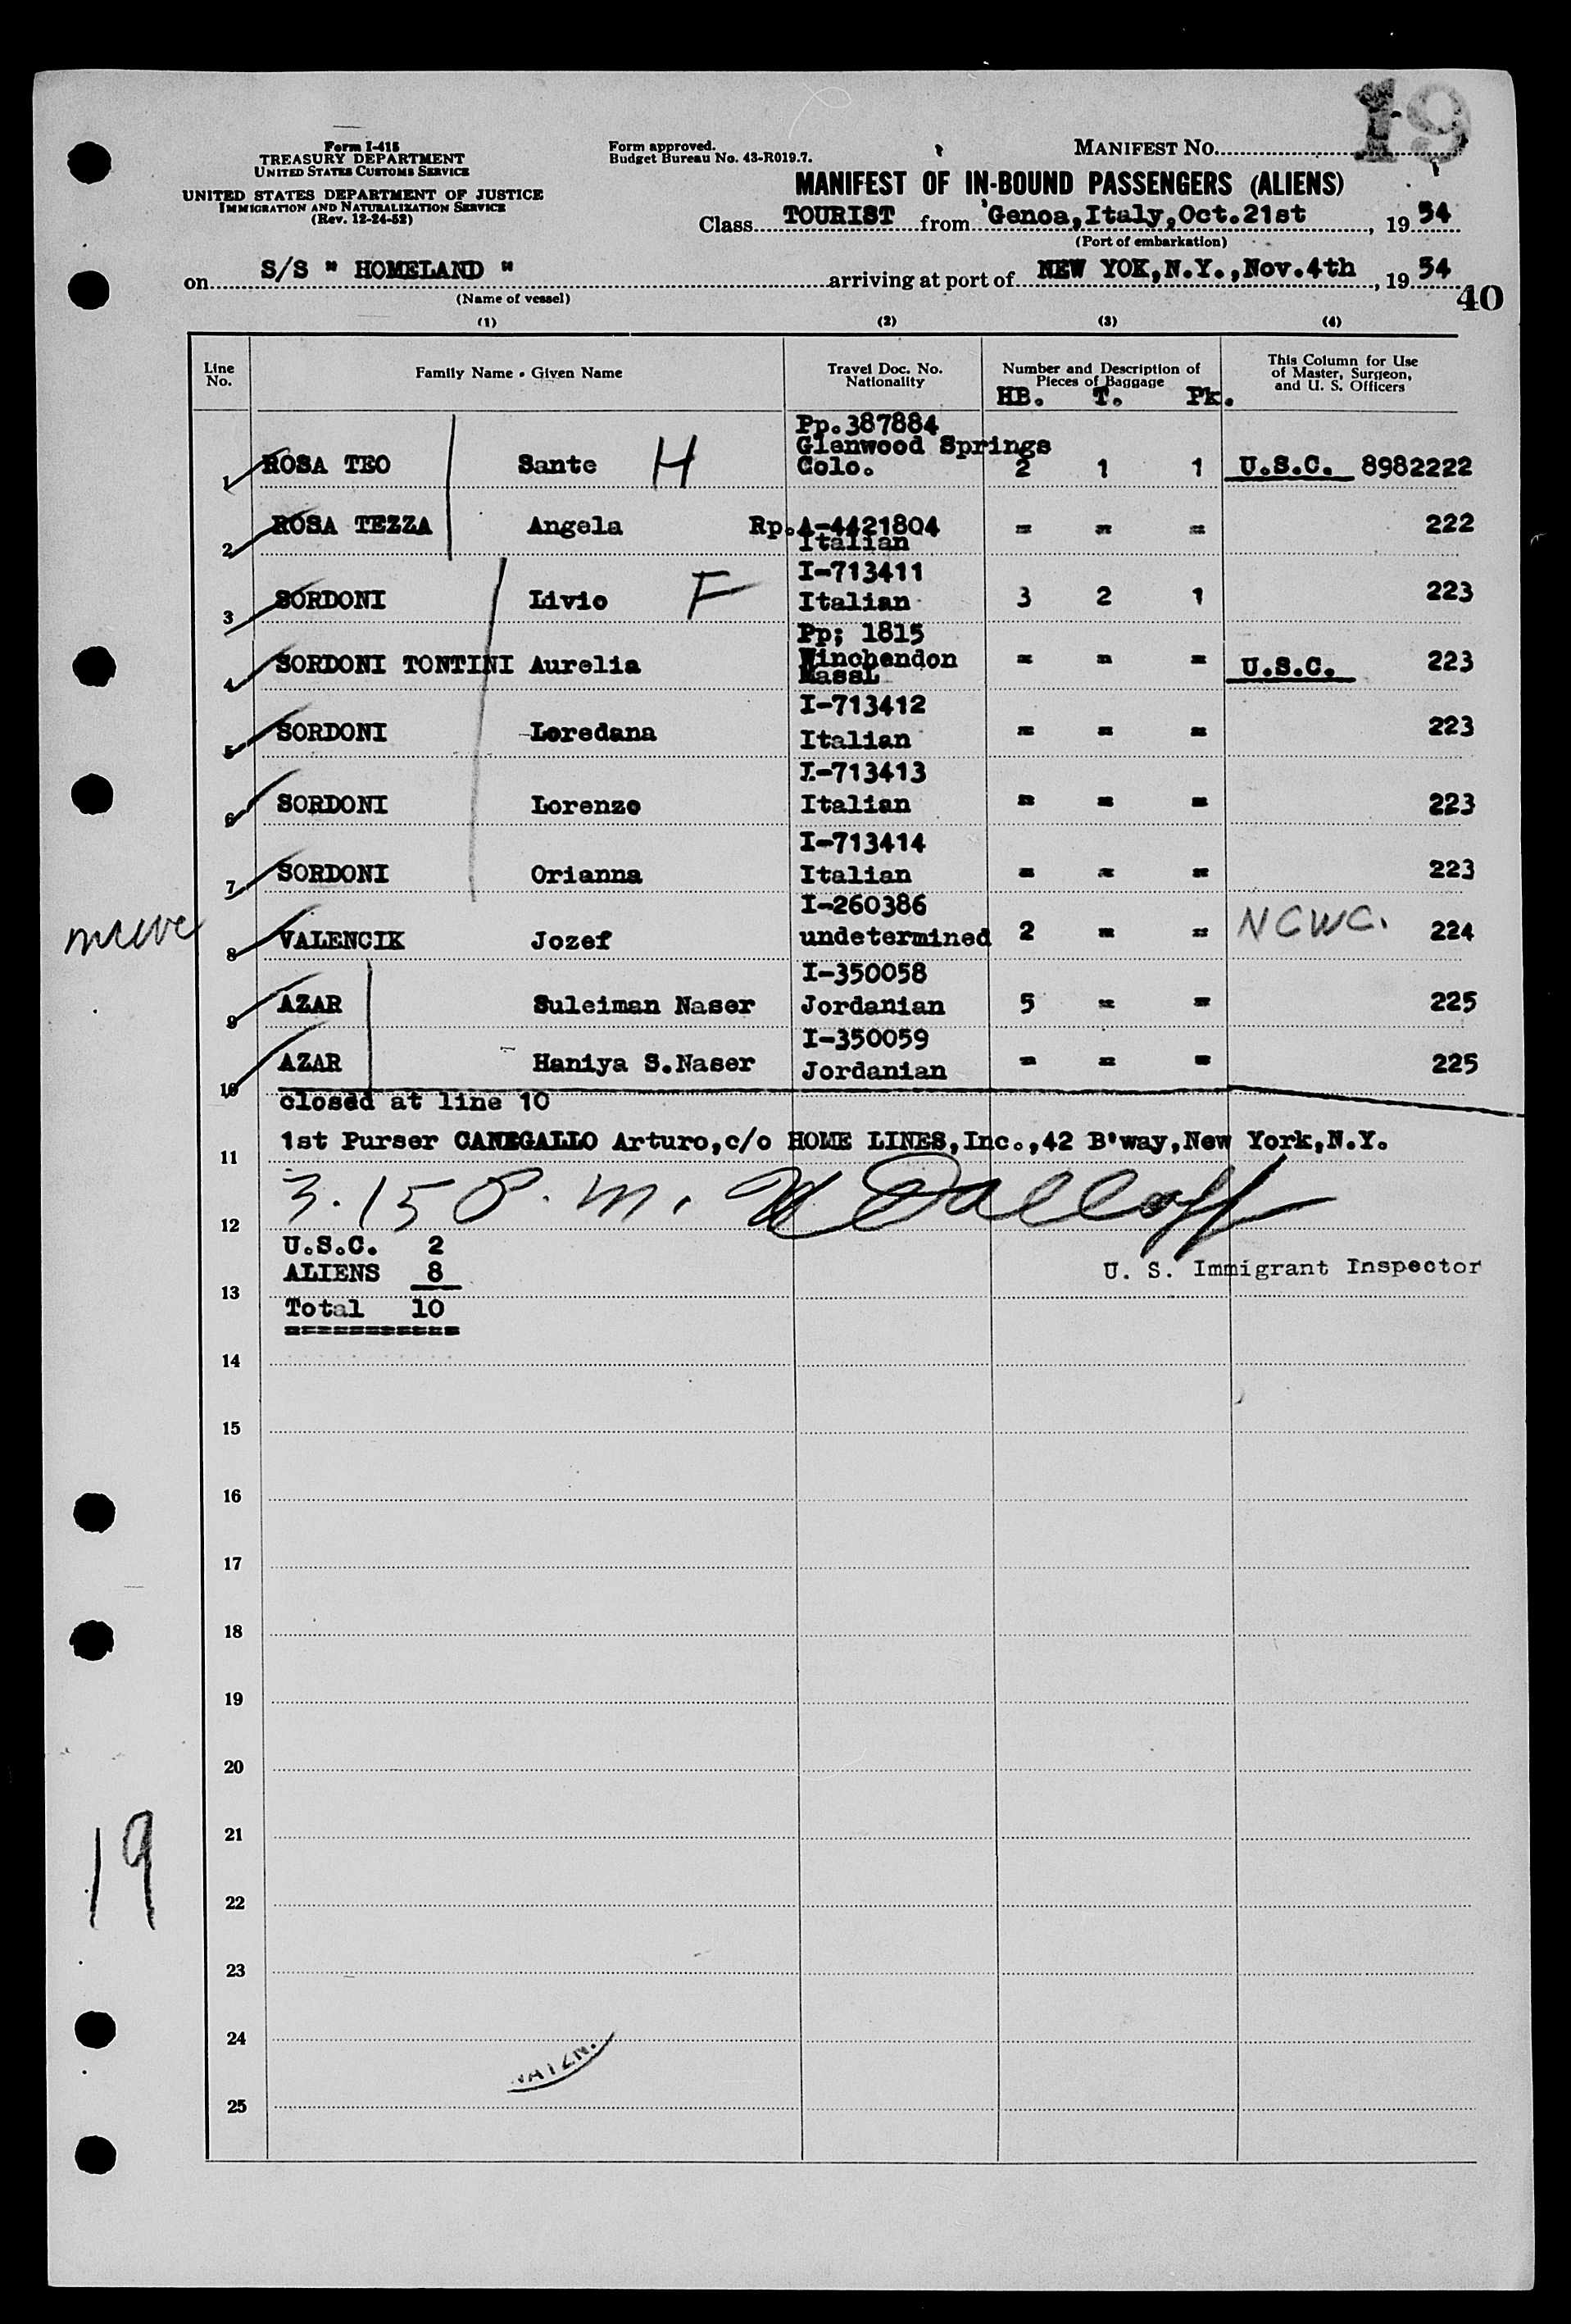 19
Form I-415
TREASURY DEPARTMENT
UNITED STATES CUSTOMS SERVICE
UNITED STATES DEPARTMENT OF JUSTICE
IMMIGRATION AND NATURALIZATION SERVICE
(Rev. 12-24-52)
Form approved.
Budget Bureau No. 43-R019.7.
MANIFEST NO.
MANIFEST OF IN-BOUND PASSENGERS (ALIENS)
Class TOURIST from Genoa,Italy,Oct.21st, 19 54
(Port of embarkation)
on S/S " HOMELAND " arriving at port of NEW YOK,N.Y.,Nov.4th, 19 54
(Name of vessel)
40
(1) (2) (3) (4)
Line No. Family Name - Given Name Travel Doc. No. Nationality Number and Description of Pieces of Baggage This Column for Use of Master, Surgeon, and U. S. Officers
HB. T. Pk.
Pp.387884
Glenwood Springs
1 ROSA TEO Sante H Colo. 2 1 1 U.S.C. 8982222
2 ROSA TEZZA Angela Rp.A-4421804 = = = 222
Italian
I-713411
3 SORDONI Livio F Italian 3 2 1 223
Pp; 1815
4 SORDONI TONTINI Aurelia Winchendon = = = U.S.C. 223
MassL
I-713412
5 SORDONI Loredana Italian = = = 223
I-713413
6 SORDONI Lorenzo Italian = = = 223
I-713414
7 SORDONI Orianna Italian = = = 223
I-260386
8 VALENCIK Jozef undetermined 2 = = NCWC. 224
I-350058
9 AZAR Suleiman Naser Jordanian 5 = = 225
I-350059
10 AZAR Haniya S.Naser Jordanian = = = 225
closed at line 10
11 1st Purser CANEGALLO Arturo,c/o HOME LINES,Inc.,42 B'way,New York,N.Y.
12 3.15 P.m.
U.S.C. 2
U. S. Immigrant Inspector
ALIENS 8
13
Total 10
===========
14
15
16
17
18
19
20
21
19
22
23
24
25